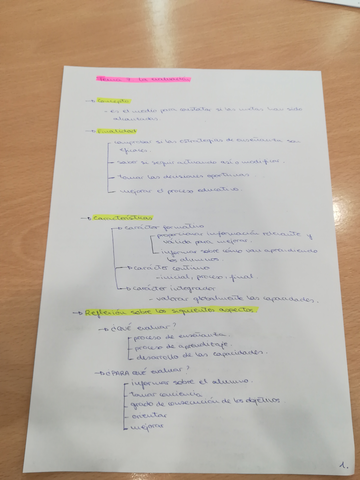 Tema 7: La evaluación
→ Concepto
- es el medio para constatar si las metas han sido alcanzadas
→ Finalidad
comprobar si las estrategias de enseñanza son eficaces.
saber si seguir actuando así o modificar.
tomar las decisiones oportunas
mejorar el proceso educativo
→ Características
→ carácter formativo
proporcionar información relevante y
válida para mejorar
informar sobre cómo están aprendiendo
los alumnos
→ carácter continuo
- inicial, proceso, final
→ carácter integrador
- valorar globalmente las capacidades.
→ Reflexión sobre los siguientes aspectos:
→ ¿QUÉ evaluar?
proceso de enseñanza.
proceso de aprendizaje.
desarrollo de las capacidades.
→ ¿PARA QUÉ evaluar?
informar sobre el alumno.
tomar conciencia
grado de consecución de los objetivos
orientar
mejorar
1.